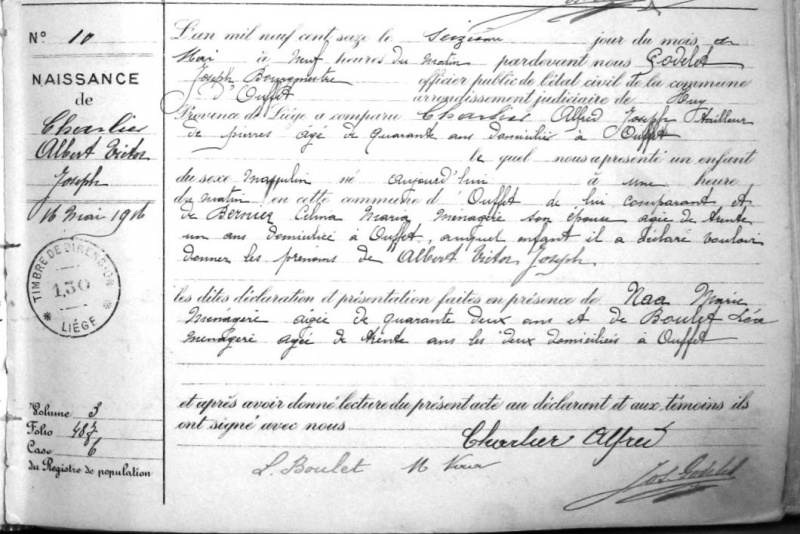 N° 10
NAISSANCE
de
Charlier
Albert Victor
Joseph
16 Mai 1916
TIMBRE DE DIMENSION
1,30
LIÉGE
Volume 3
Folio
Case 6
du Registre de population
L'an mil neuf cent seize le seizième jour du mois de
Mai à neuf heures du matin pardevant nous Godelet
Joseph Bourgmestre officier public de l'état civil de la commune
d'Ouffet arrondissement judiciaire de Huy
Province de Liége a comparu Charlier Alfred Joseph tailleur
de pierres agé de quarante ans domicilié à Ouffet
le quel nous a présenté un enfant
du sexe masculin né aujourd'hui à une heure
du matin en cette commune d'Ouffet de lui comparant et
de Bernier Celina Maria ménagère son épouse agée de trente
un ans domiciliée à Ouffet, auquel enfant il a déclaré vouloir
donner les prénoms de Albert Victor Joseph
les dites déclaration et présentation faites en présence de Naa Marie
ménagère agée de quarante deux ans et de Boulet Léa
ménagère agée de trente ans les deux domiciliés à Ouffet
et après avoir donné lecture du présent acte au déclarant et aux témoins ils
ont signé avec nous
Charlier Alfred
L. Boulet M
Jos. Godelet